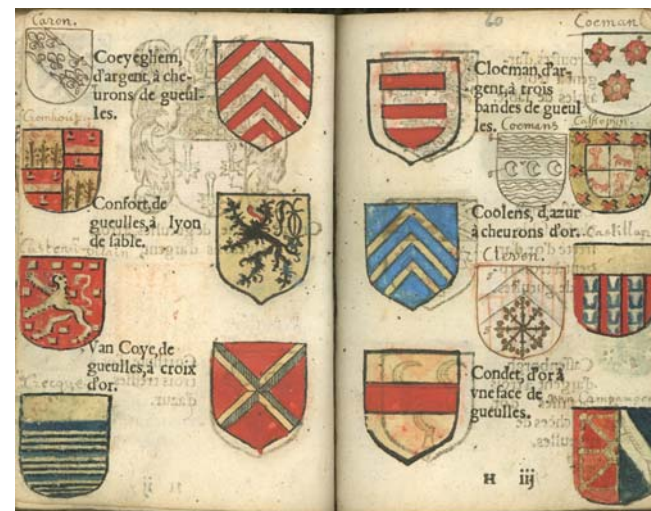 Caron.
Coeyeghem,
d'argent, à che-
urons de gueul-
les.
Confort, de
gueulles, à lyon
de sable.
Van Coye, de
gueulles, à croix
d'or.
60
Coeman
Clocman, d'ar-
gent à trois
bandes de gueul
les.
Coomans
Coolens, d'azur
à cheurons d'or.
Castillap
Cleven.
Condet, d'or à
vne face de
gueulles.
H iij